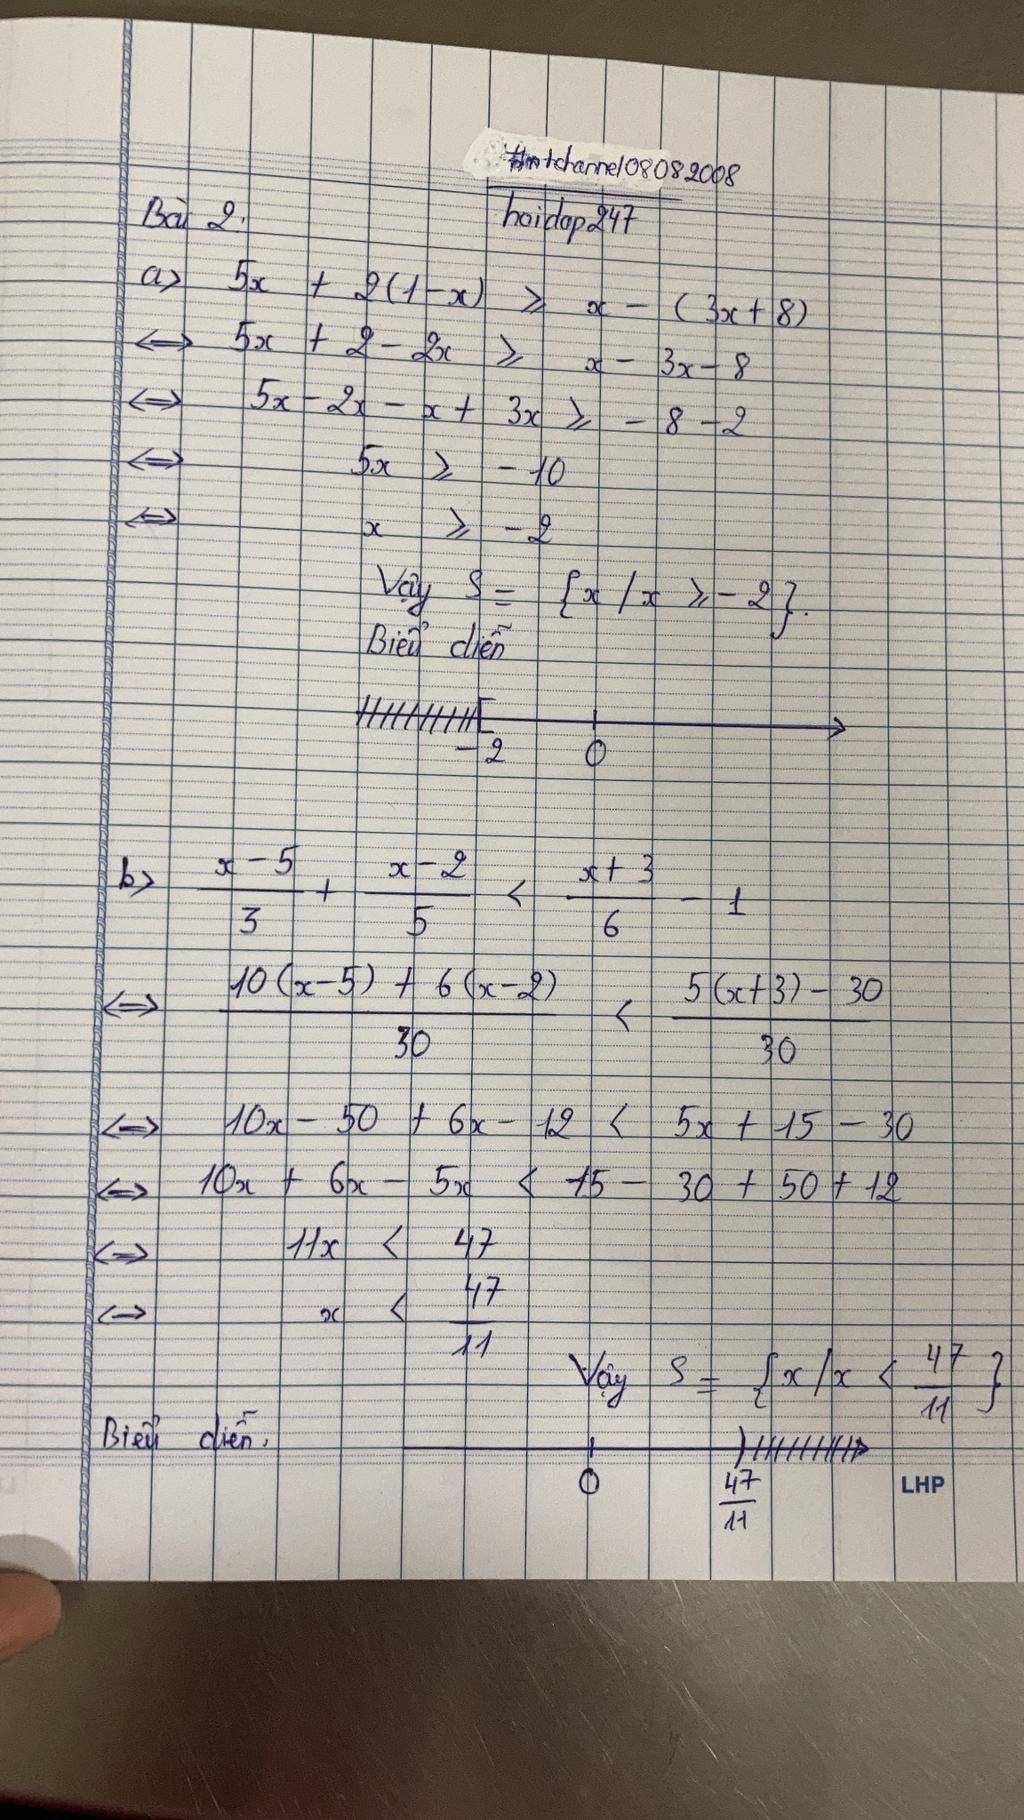 #mtchannel08082008
hoidap247
Bài 2.
a> 5x + 2(1-x) ⩾ x - (3x + 8)
<=> 5x + 2 - 2x ⩾ x - 3x - 8
<=> 5x - 2x - x + 3x ⩾ - 8 - 2
<=> 5x ⩾ - 10
<=> x ⩾ - 2
Vậy S = {x / x ⩾ - 2}.
Biểu diễn
-2 0
b> x - 5 / 3 + x - 2 / 5 < x + 3 / 6 - 1
<=> 10(x-5) + 6(x-2) / 30 < 5(x+3) - 30 / 30
<=> 10x - 50 + 6x - 12 < 5x + 15 - 30
<=> 10x + 6x - 5x < 15 - 30 + 50 + 12
<=> 11x < 47
<=> x < 47 / 11
Vậy S = {x / x < 47 / 11}
Biểu diễn.
0 47 / 11
LHP